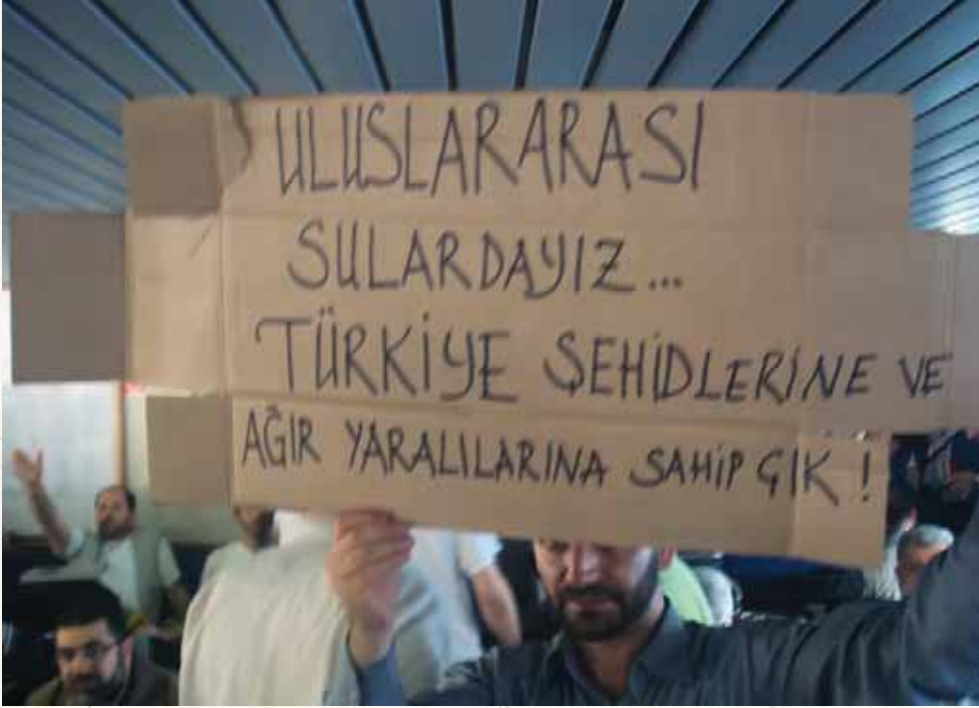 ULUSLARARASI
SULARDAYIZ...
TÜRKİYE ŞEHİDLERİNE VE
AĞIR YARALILARINA SAHİP ÇIK !